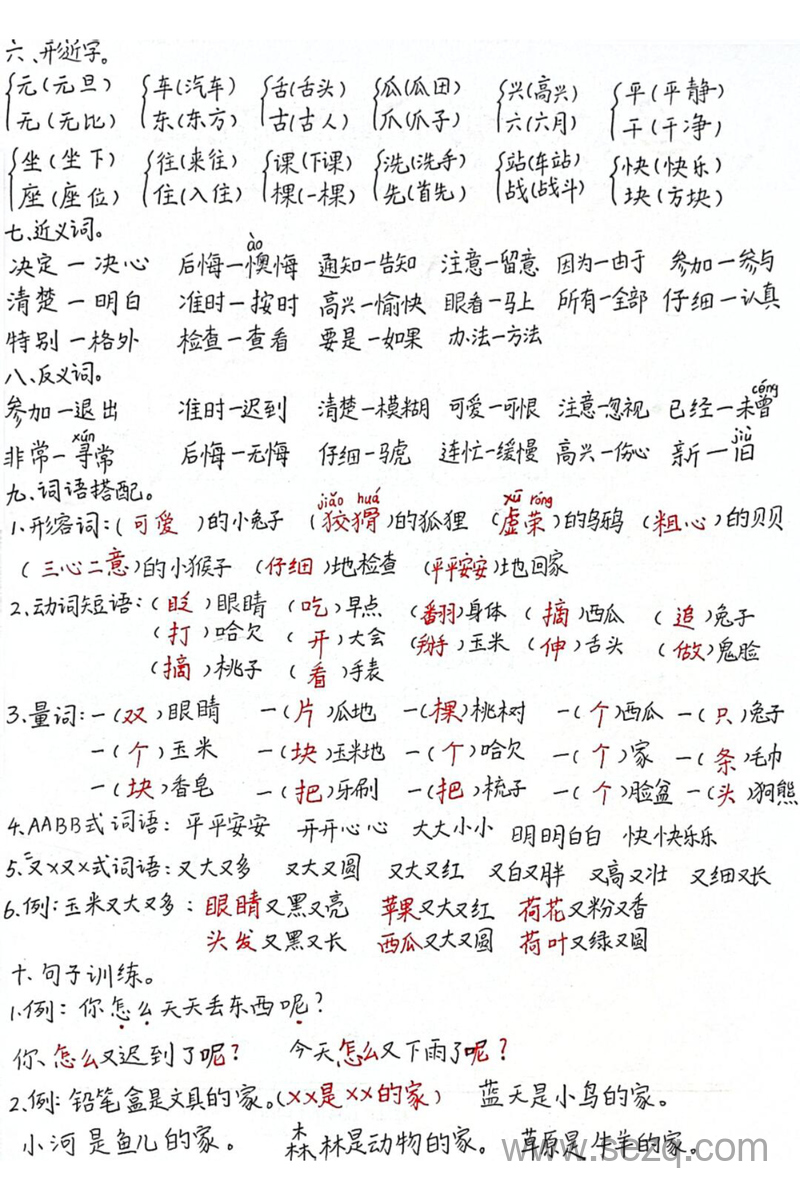 六、形近字。
元(元旦) 车(汽车) 舌(舌头) 瓜(瓜田) 兴(高兴) 平(平静)
无(无比) 东(东方) 古(古人) 爪(爪子) 六(六月) 干(干净)
坐(坐下) 往(来往) 课(下课) 洗(洗手) 站(车站) 快(快乐)
座(座位) 住(入住) 棵(一棵) 先(首先) 战(战斗) 块(方块)
七、近义词。
ào
决定一决心 后悔一懊悔 通知一告知 注意一留意 因为一由于 参加一参与
清楚一明白 准时一按时 高兴一愉快 眼看一马上 所有一全部 仔细一认真
特别一格外 检查一查看 要是一如果 办法一方法
八、反义词。
céng
参加一退出 准时一迟到 清楚一模糊 可爱一可恨 注意一忽视 已经一未曾
xún jiù
非常一寻常 后悔一无悔 仔细一马虎 连忙一缓慢 高兴一伤心 新一旧
九、词语搭配。
jiǎo huá xū róng
1.形容词:(可爱)的小兔子 (狡猾)的狐狸 (虚荣)的乌鸦 (粗心)的贝贝
(三心二意)的小猴子 (仔细)地检查 (平平安安)地回家
2.动词短语:(眨)眼睛 (吃)早点 (翻)身体 (摘)西瓜 (追)兔子
(打)哈欠 (开)大会 (掰)玉米 (伸)舌头 (做)鬼脸
(摘)桃子 (看)手表
3.量词:一(双)眼睛 一(片)瓜地 一(棵)桃树 一(个)西瓜 一(只)兔子
一(个)玉米 一(块)玉米地 一(个)哈欠 一(个)家 一(条)毛巾
一(块)香皂 一(把)牙刷 一(把)梳子 一(个)脸盆 一(头)狗熊
4.AABB式词语:平平安安 开开心心 大大小小 明明白白 快快乐乐
5.又×又×式词语:又大又多 又大又圆 又大又红 又白又胖 又高又壮 又细又长
6.例:玉米又大又多:眼睛又黑又亮 苹果又大又红 荷花又粉又香
头发又黑又长 西瓜又大又圆 荷叶又绿又圆
十、句子训练。
1.例:你怎么天天丢东西呢?
你怎么又迟到了呢? 今天怎么又下雨了呢?
2.例:铅笔盒是文具的家。(××是××的家) 蓝天是小鸟的家。
小河是鱼儿的家。 森林是动物的家。 草原是牛羊的家。
www.sezq.com